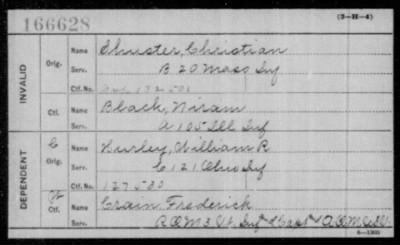 166628
(3-H-4)
INVALID
Orig.
Name Shuster, Christian
Serv. B 20 Mass Inf
Ctf. No.
Ctf.
Name Black, Niram
Serv. A 105 Ill Inf
DEPENDENT
Orig.
Name Hurley, William R
Serv. C 121 Ohio Inf
Ctf. No. 127580
Ctf.
Name Crain, Frederick
Serv. R.Q.M. 3 Inf